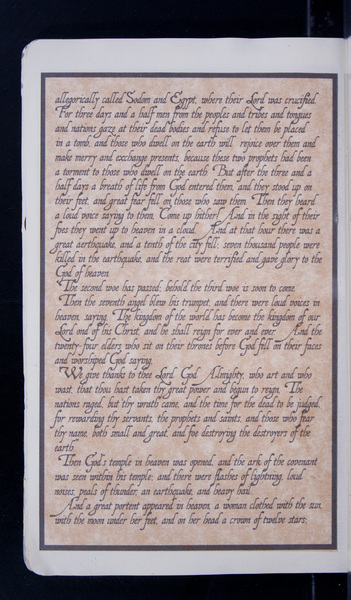 allegorically called Sodom and Egypt, where their Lord was crucified.
For three days and a half men from the peoples and tribes and tongues
and nations gaze at their dead bodies and refuse to let them be placed
in a tomb, and those who dwell on the earth will rejoice over them and
make merry and exchange presents, because these two prophets had been
a torment to those who dwell on the earth. But after the three and a
half days a breath of life from God entered them, and they stood up on
their feet, and great fear fell on those who saw them. Then they heard
a loud voice saying to them, Come up hither! And in the sight of their
foes they went up to heaven in a cloud. And at that hour there was a
great aerthquake, and a tenth of the city fell; seven thousand people were
killed in the earthquake, and the rest were terrified and gave glory to the
God of heaven.
The second woe has passed; behold, the third woe is soon to come.
Then the seventh angel blew his trumpet, and there were loud voices in
heaven, saying, The kingdom of the world has become the kingdom of our
Lord and of his Christ, and he shall reign for ever and ever. And the
twenty-four elders who sit on their thrones before God fell on their faces
and worshiped God saying,
We give thanks to thee Lord God Almighty, who art and who
wast, that thou hast taken thy great power and begun to reign. The
nations raged, but thy wrath came, and the time for the dead to be judged,
for rewarding thy servants, the prophets and saints, and those who fear
thy name, both small and great, and foe destroying the destroyers of the
earth.
Then God's temple in heaven was opened, and the ark of the covenant
was seen within his temple; and there were flashes of lightning, loud
noises, peals of thunder, an earthquake, and heavy hail.
And a great portent appeared in heaven, a woman clothed with the sun,
with the moon under her feet, and on her head a crown of twelve stars;